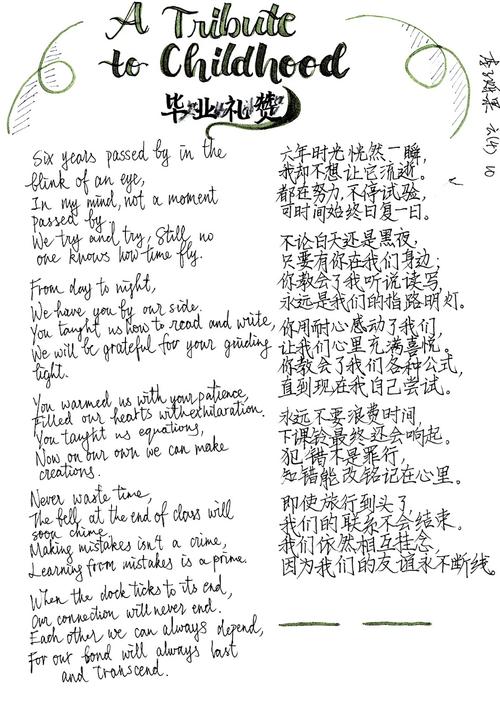 A Tribute
to Childhood
毕业礼赞
六(4) 10
Six years passed by in the
blink of an eye,
In my mind, not a moment
passed by.
We try and try, Still, no
one knows how time fly.
From day to night,
We have you by our side.
You taught us how to read and write,
We will be grateful for your guiding
light.
You warmed us with your patience,
Filled our hearts with exhilaration.
You taught us equations,
Now on our own we can make
creations.
Never waste time,
The bell at the end of class will
soon chime.
Making mistakes isn't a crime,
Learning from mistakes is a prime.
When the clock ticks to its end,
Our connection will never end.
Each other we can always depend,
For our bond will always last
and transcend.
六年时光恍然一瞬,
我却不想让它流逝。
都在努力,不停试验,
可时间始终日复一日。
不论白天还是黑夜,
只要有你在我们身边;
你教会了我听说读写,
永远是我们的指路明灯。
你用耐心感动了我们,
让我们心里充满喜悦。
你教会了我们各种公式,
直到现在我自己尝试。
永远不要浪费时间,
下课铃最终还会响起。
犯错不是罪行,
知错能改铭记在心里。
即使旅行到头了,
我们的联系不会结束。
我们依然相互挂念,
因为我们的友谊永不断线。